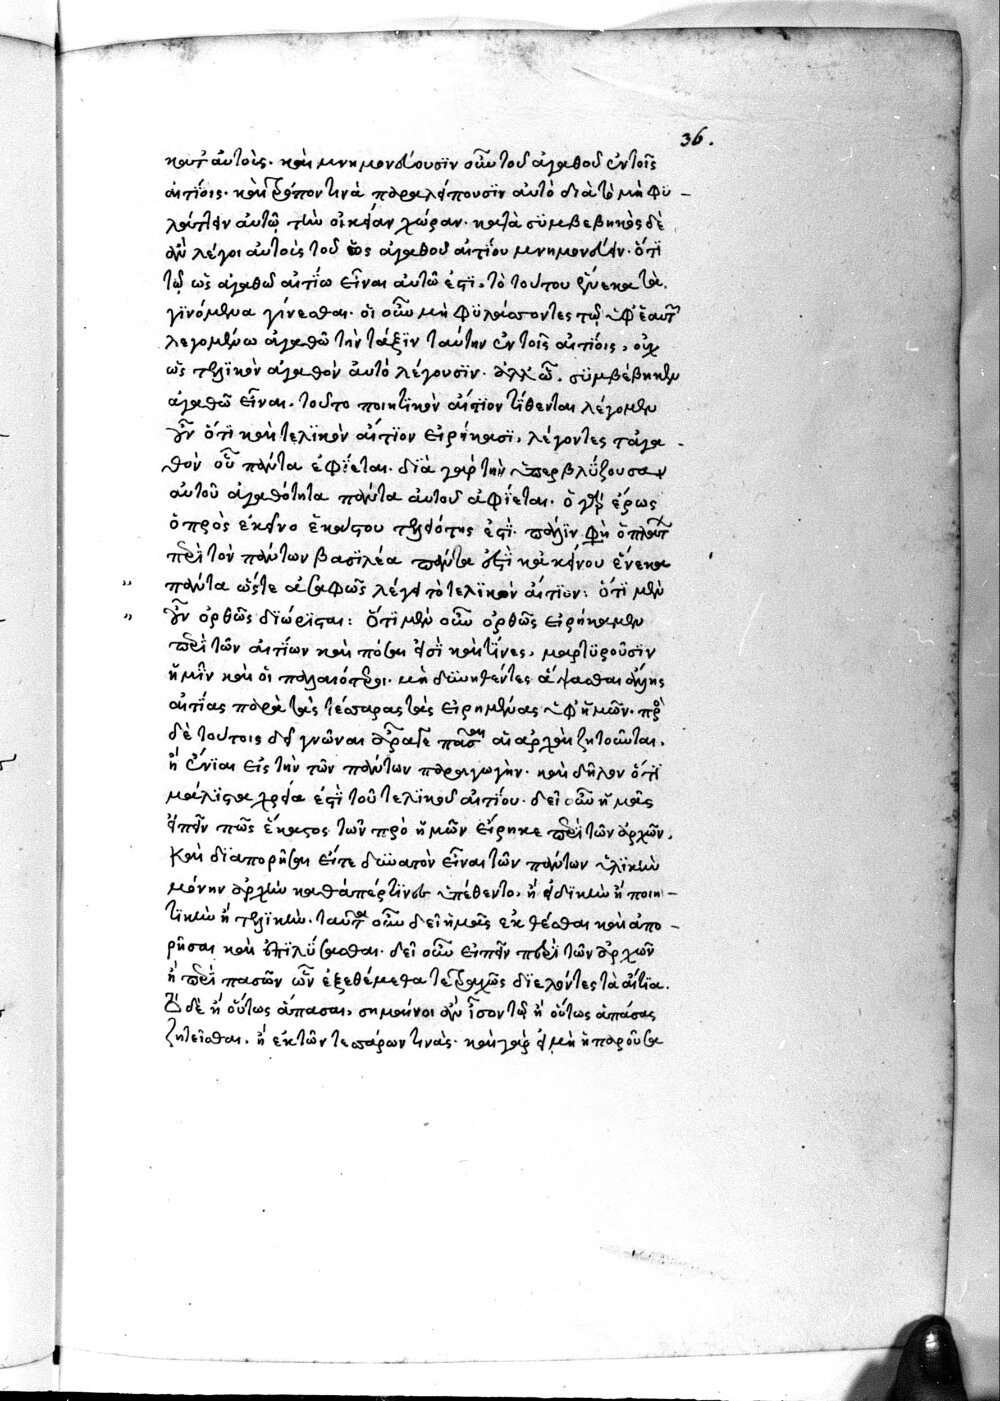 36.
κατ' αὐτοὺς. καὶ μνημονεύουσιν οὖν τοῦ ἀγαθοῦ ἐν τοῖς
αἰτίοις. καὶ τρόπον τινὰ παραλείπουσιν αὐτὸ διὰ τὸ μὴ φυ-
λάττειν αὐτῷ τὴν οἰκείαν χώραν. κατὰ συμβεβηκὸς δὲ
ἂν λέγοι αὐτοὺς τοῦ ὡς ἀγαθοῦ αἰτίου μνημονεύειν. ὅτι
τῷ ὡς ἀγαθῷ αἰτίῳ εἶναι αὐτῷ ἐστι. τὸ τούτου ἕνεκα τὰ
γινόμενα γίνεσθαι. οἱ οὖν μὴ φυλάσσοντες τῷ ὑφ' ἑαυτῶν
λεγομένῳ ἀγαθῷ τὴν τάξιν ταύτην ἐν τοῖς αἰτίοις, οὐχ
ὡς τελικὸν ἀγαθὸν αὐτὸ λέγουσιν. ἀλλ' ὧ. συμβέβηκεν
ἀγαθῷ εἶναι. τοῦτο ποιητικὸν αἴτιον τίθενται λέγομεν
οὖν ὅτι καὶ τελικὸν αἴτιον εἰρήκασι, λέγοντες τἀγα-
θὸν οὗ πάντα ἐφίεται. διὰ γὰρ τὴν ὑπερβλύζουσαν
αὐτοῦ ἀγαθότητα πάντα αὐτοῦ ἐφίεται. ὁ γὰρ ἔρως
ὁ πρὸς ἐκεῖνο ἑκάστου τελειότης ἐστὶ. πάλιν φησὶ ὁ πλάτων
περὶ τὸν πάντων βασιλέα πάντα ἐστὶ κἀκείνου ἕνεκα
πάντα ὥστε ἀσαφῶς λέγει τὸ τελικὸν αἴτιον: ὅτι μὲν
οὖν ὀρθῶς διώρισται: Ὅτι μὲν οὖν ὀρθῶς εἰρήκαμεν
περὶ τῶν αἰτίων καὶ πόσαι εἰσὶ καὶ τίνες, μαρτυροῦσιν
ἡμῖν καὶ οἱ παλαιότεροι. μὴ δυνηθέντες ἅψασθαι ἄλλης
αἰτίας παρὰ τὰς τέσσαρας τὰς εἰρημένας ὑφ' ἡμῶν. πρὸς
δὲ τούτοις δεῖ γνῶναι ἆρά γε πᾶσαι αἱ ἀρχαὶ ζητοῦνται.
ἢ ἔνιαι εἰς τὴν τῶν πάντων παραγωγήν. καὶ δῆλον ὅτι
μάλιστα χρεία ἐστὶ τοῦ τελικοῦ αἰτίου. δεῖ οὖν ἡμᾶς
εἰπεῖν πῶς ἕκαστος τῶν πρὸ ἡμῶν εἴρηκε περὶ τῶν ἀρχῶν.
καὶ διαπορῆσαι εἴτε δυνατὸν εἶναι τῶν πάντων ὑλικὴν
μόνην ἀρχὴν καθάπερ τινὲς ὑπέθεντο, ἢ εἰδικὴν ἢ ποιη-
τικὴν ἢ τελικὴν. ταῦτα οὖν δεῖ ἡμᾶς ἐκθέσθαι καὶ ἀπο-
ρῆσαι καὶ ἐπιλύσασθαι. δεῖ οὖν εἰπεῖν περὶ τῶν ἀρχῶν
ἢ περὶ πασῶν ὧν ἐξεθέμεθα τετραχῶς διελόντες τὰ αἴτια.
Τὸ δὲ ἢ οὕτως ἁπάσαι, σημαίνοι ἂν ἴσον τῷ ἢ οὕτως ἁπάσας
ζητεῖσθαι. ἢ ἐκ τῶν τεσσάρων τινὰς. καὶ γὰρ εἰ μὴ ἡ παροῦσα